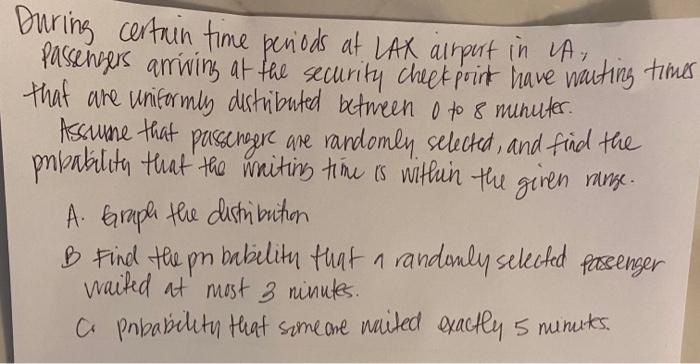 During certain time periods at LAX airport in LA,
passengers arriving at the security checkpoint have waiting times
that are uniformly distributed between 0 to 8 minutes.
Assume that passengers are randomly selected, and find the
probability that the waiting time is within the given range.
A. Graph the distribution
B Find the probability that a randomly selected passenger
waited at most 3 minutes.
C. probability that someone waited exactly 5 minutes.